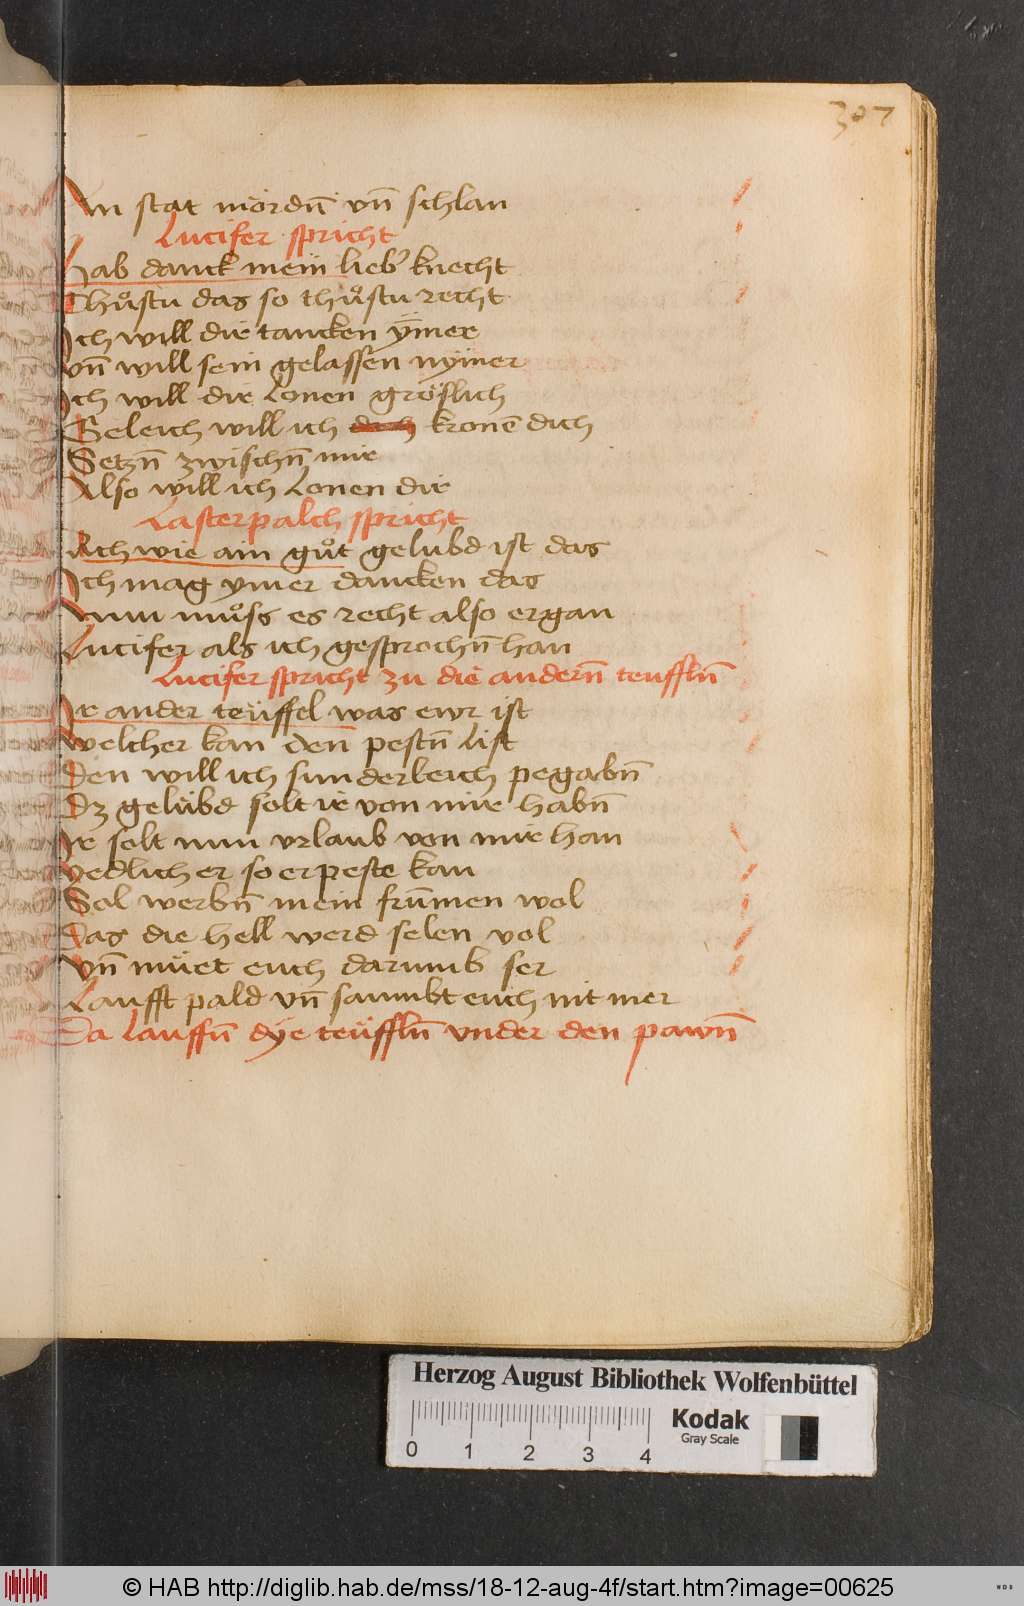 307
An stat mördn̄ vn̄ schlan
Lucifer spricht
Hab danck mein lieb' knecht
Thůstu das so thůstu recht
Ich will dir tancken ÿmer
vn̄ will sein gelassen nÿmer
Ich will dir Lonen gröslich
Geleich will ich kronē dich
Setzn̄ zwischn̄ mir
Also will ich Lonen dir
Lasterpalch spricht
Ach wie ain gůt gelubd ist das
Ich mag ymer dancken das
Nun můss es recht also ergan
Lucifer als ich gesprochn̄ han
Lucifer spricht zu die andern̄ teuffln̄
Ir ander teüffel was ewr ist
welcher kan den pestn̄ List
Den will ich sunderleich pegabn̄
Dz gelübd solt ir von mir habn̄
Ir solt nun vrlaub von mir han
yedlicher so er peste kan
Sol werbn̄ mein frūmen wol
Das die hell werd selen vol
vn̄ müet euch darumb ser
Laufft pald vn̄ saumbt euch nit mer
Da Lauffn̄ dÿe teüffln̄ vnder den pawn̄
Herzog August Bibliothek Wolfenbüttel
0 1 2 3 4
Kodak
Gray Scale
© HAB http://diglib.hab.de/mss/18-12-aug-4f/start.htm?image=00625